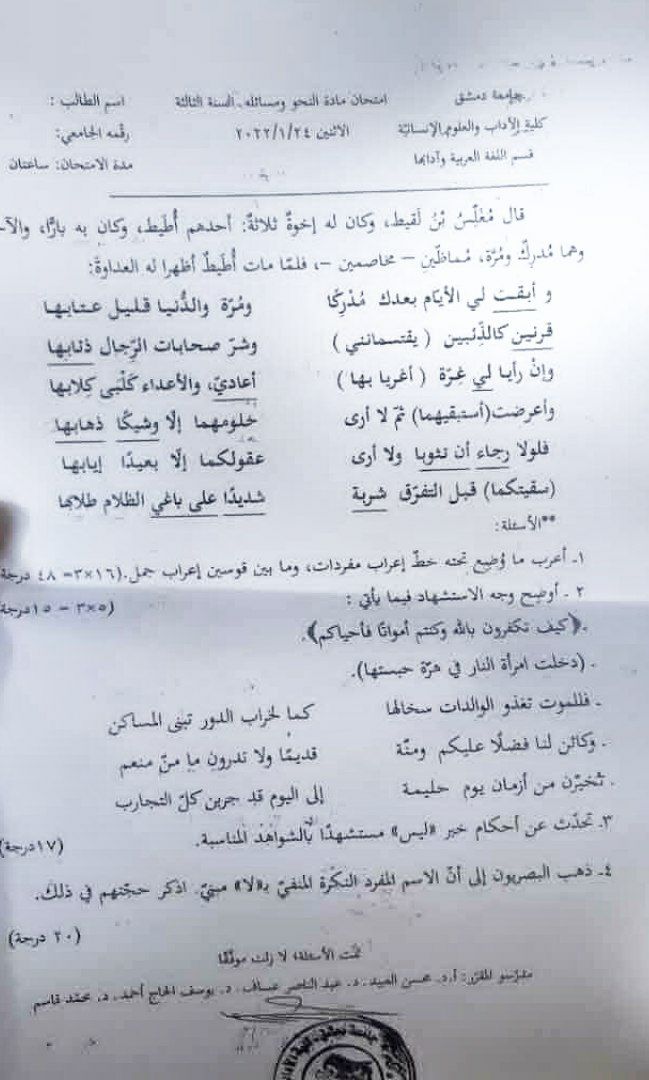 جامعة دمشق امتحان مادة النحو ومسائله ـ السنة الثالثة اسم الطالب :
كلية الآداب والعلوم الإنسانيّة الاثنين ٢٠٢٢/١/٢٤ رقمه الجامعي:
قسم اللغة العربية وآدابها مدة الامتحان: ساعتان
قال مُغلِّسُ بْنُ لَقيط، وكان له إخوةٌ ثلاثةٌ: أحدهم أُطَيط، وكان به بارًّا،
وهما مُدرِكٌ ومُرّة، مُماظّين – مخاصمين –، فلمّا مات أُطَيطٌ أظهرا له العداوة:
و أبقت لي الأيّام بعدك مُدْرِكًا ومُرّة والدُّنيا قليل عتابها
قرنين كالذّئبين ( يقتسمانني ) وشرّ صحابات الرّجال ذئابها
وإنْ رأيا لي غِرّة ( أغريا بها ) أعاديّ، والأعداء كَلْبى كِلابها
وأعرضت(أستبقيهما) ثمّ لا أرى حُلومهما إلّا وشيكًا ذهابها
فلولا رجاء أن تثوبا ولا أرى عقولكما إلّا بعيدًا إيابها
(سقيتكما) قبل التفرّق شربة شديدًا على باغي الظلام طلابها
**الأسئلة:
١- أعرب ما وُضِع تحته خطّ إعراب مفردات، وما بين قوسين إعراب جمل.(١٦×٣= ٤٨ درجة
٢ - أوضح وجه الاستشهاد فيما يأتي : (٥×٣ = ١٥درجة
. ﴿كيف تكفرون بالله وكنتم أمواتًا فأحياكم﴾.
. (دخلت امرأة النار في هرّة حبستها).
ـ فللموت تغذو الوالدات سخالها كما لخراب الدور تبنى المساكن
. وكائن لنا فضلًا عليكم ومنّة قديمًا ولا تدرون ما منّ منعم
. تُخيّرن من أزمان يوم حليمة إلى اليوم قد جربن كلّ التجارب
٣ـ تحدّث عن أحكام خبر «ليس» مستشهدًا بالشواهد المناسبة. (١٧درجة)
٤ـ ذهب البصريون إلى أنّ الاسم المفرد النكرة المنفيّ بـ«لا» مبنيّ. اذكر حجّتهم في ذلك.
(٢٠ درجة)
تمّت الأسئلة، لا زلت موفّقًا
مدرّسو المقرّر: أ.د. محسن العبيد ـ د. عبد الناصر عساف ـ د. يوسف الحاج أحمد ـ د. محمّد قاسم